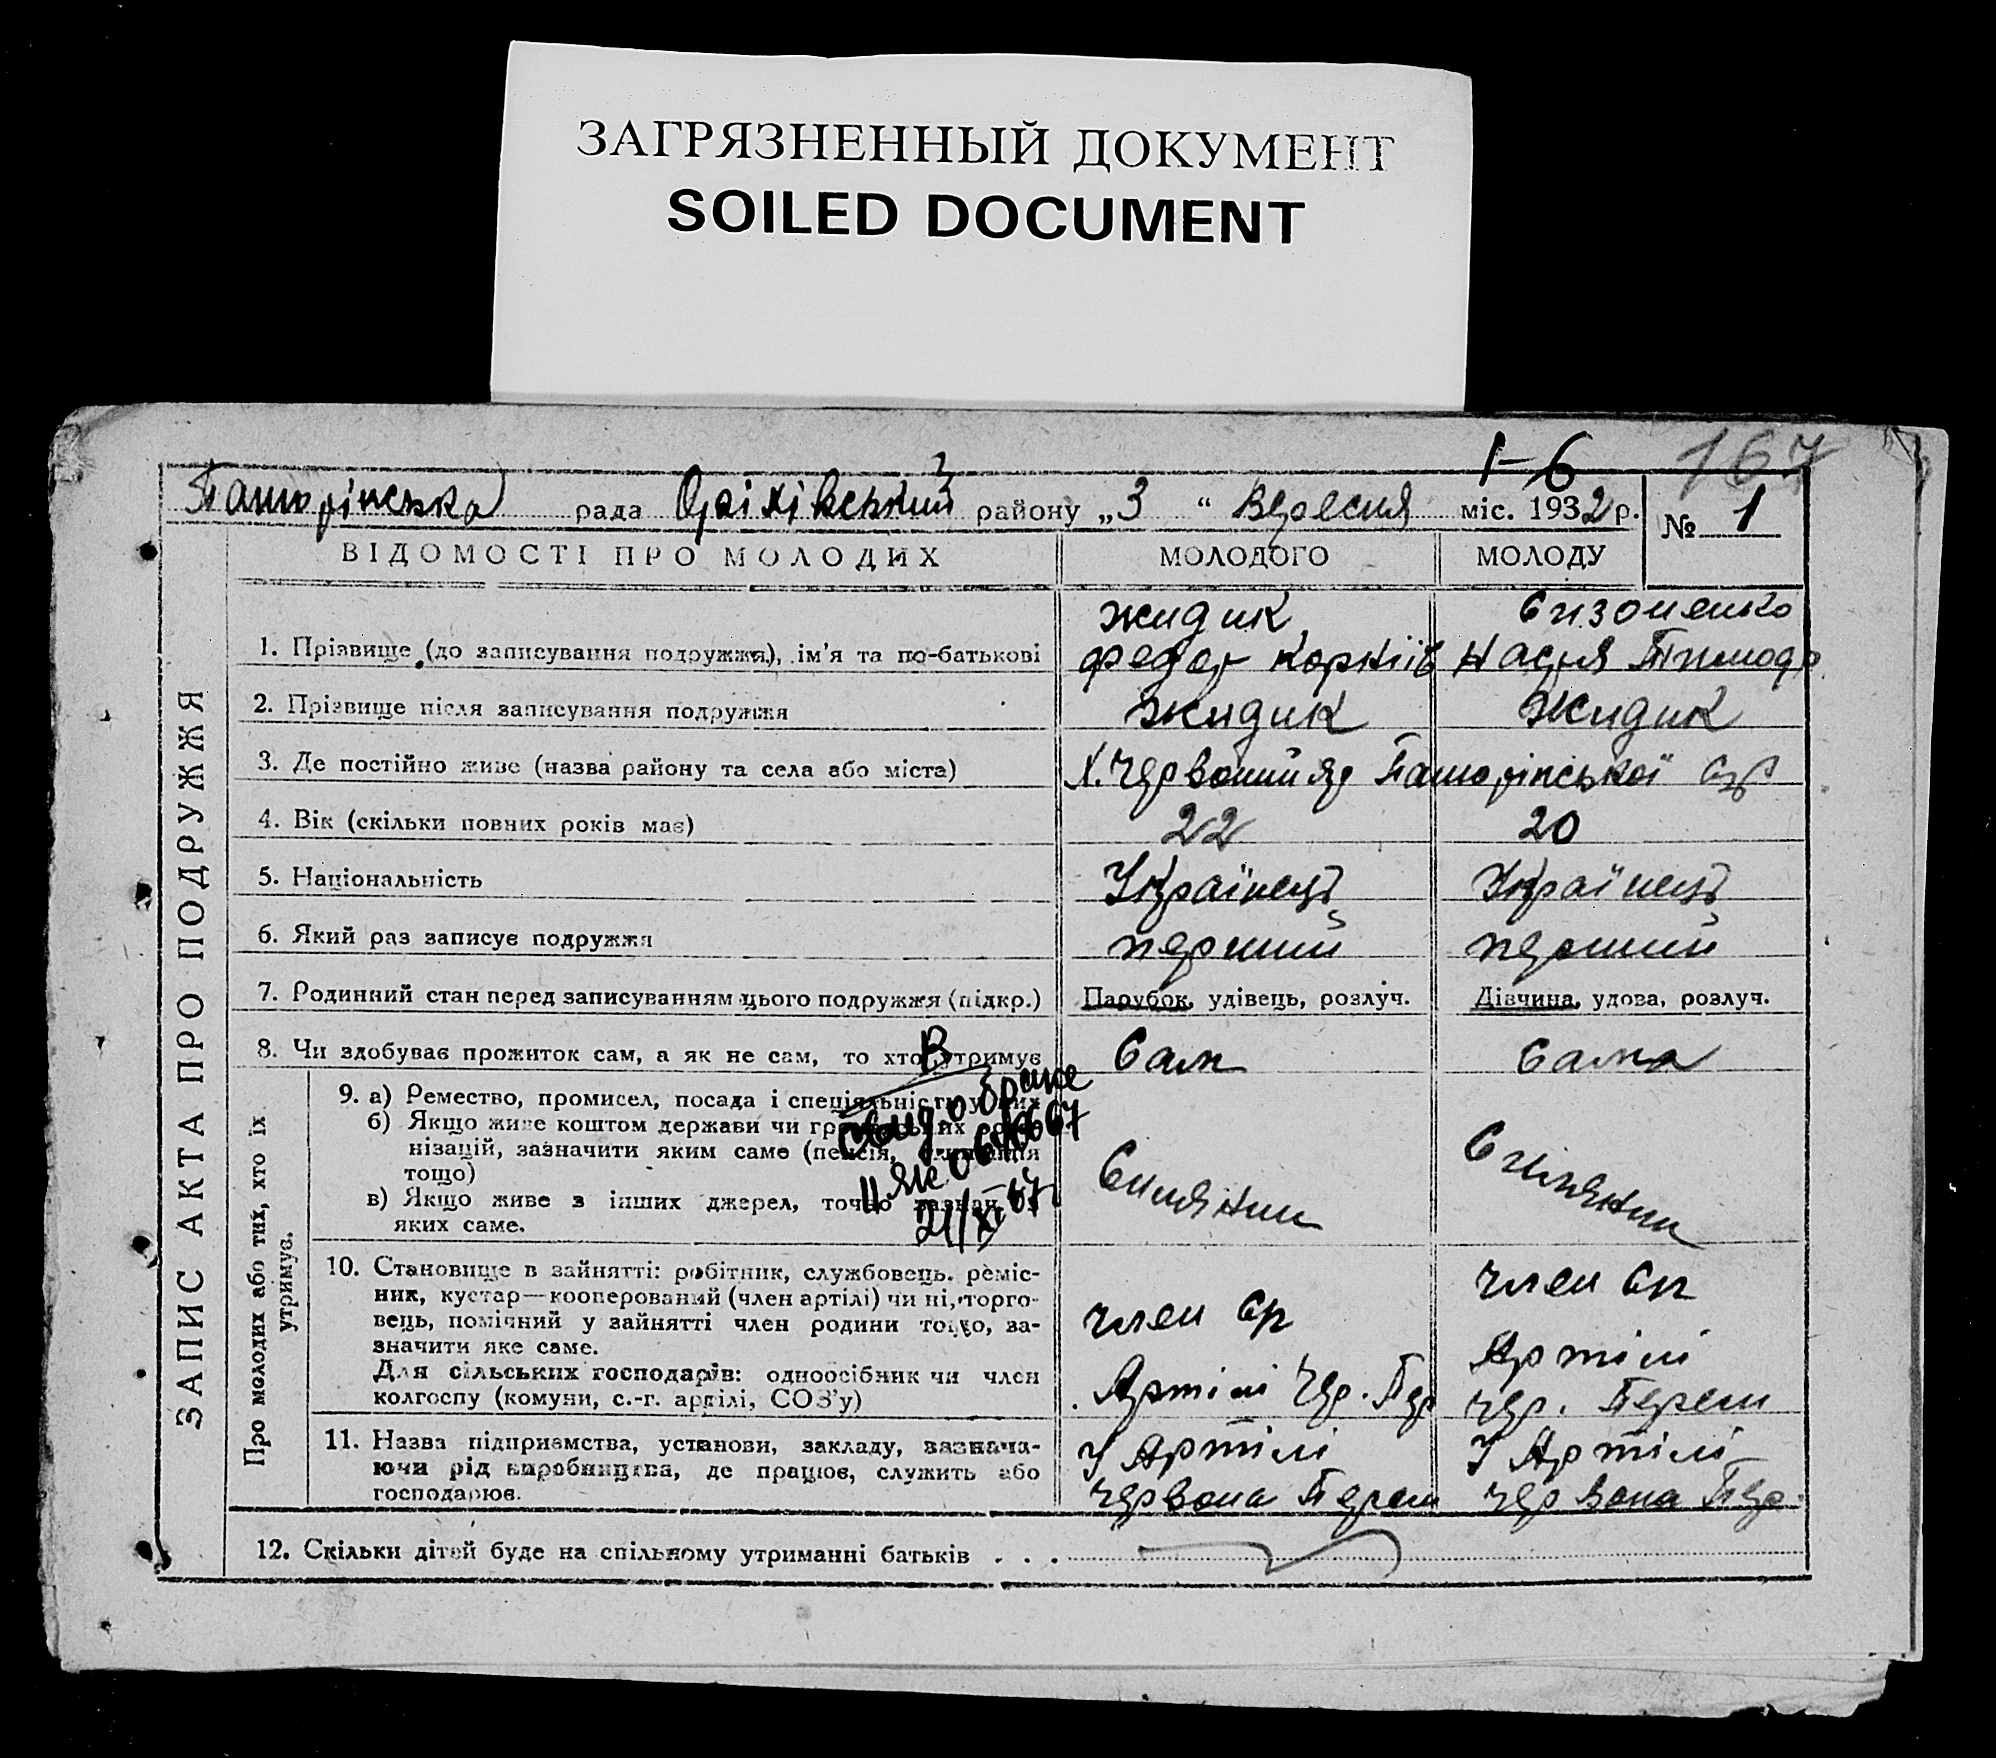 ЗАГРЯЗНЕННЫЙ ДОКУМЕНТ
SOILED DOCUMENT
1-6 167
рада Оріхівський району „3 “ Вересня міс. 1932 р. № 1
ВІДОМОСТІ ПРО МОЛОДИХ МОЛОДОГО МОЛОДУ
Жидик Сизоненко
1. Прізвище (до записування подружжя), ім’я та по-батькові Федор Корніїв Настя Тимоф
2. Прізвище після записування подружжя Жидик Жидик
3. Де постійно живе (назва району та села або міста) Х. Червоний яр
4. Вік (скільки повних років має) 22 20
5. Національність Українець Українець
6. Який раз записує подружжя перший перший
7. Родинний стан перед записуванням цього подружжя (підкр.) Парубок, удівець, розлуч. Дівчина, удова, розлуч.
8. Чи здобуває прожиток сам, а як не сам, то хто утримує Сам Сама
9. а) Ремество, промисел, посада і спеціяльність у них
б) Якщо живе коштом держави чи
нізацій, зазначити яким саме (пенсія,
тощо)
в) Якщо живе з інших джерел, точно
яких саме.
В
свид о браке
ІІ ЯК
21/XI 67
Селянин Селянин
10. Становище в зайнятті: робітник, службовець, реміс-
ник, кустар—кооперований (член артілі) чи ні, торго-
вець, помічний у зайнятті член родини тощо, за-
значити яке саме.
Для сільських господарів: одноосібник чи член
колгоспу (комуни, с.-г. артілі, СОЗ’у)
член ср
Артілі Чер. Пер
член сп
Артілі
чер. Перем
11. Назва підприємства, установи, закладу, зазнача-
ючи рід виробництва, де працює, служить або
господарює.
У Артілі
Червона Перем
У Артілі
Червона Пер.
12. Скільки дітей буде на спільному утриманні батьків . . .
ЗАПИС АКТА ПРО ПОДРУЖЖЯ
Про молодих або тих, хто їх
утримує.